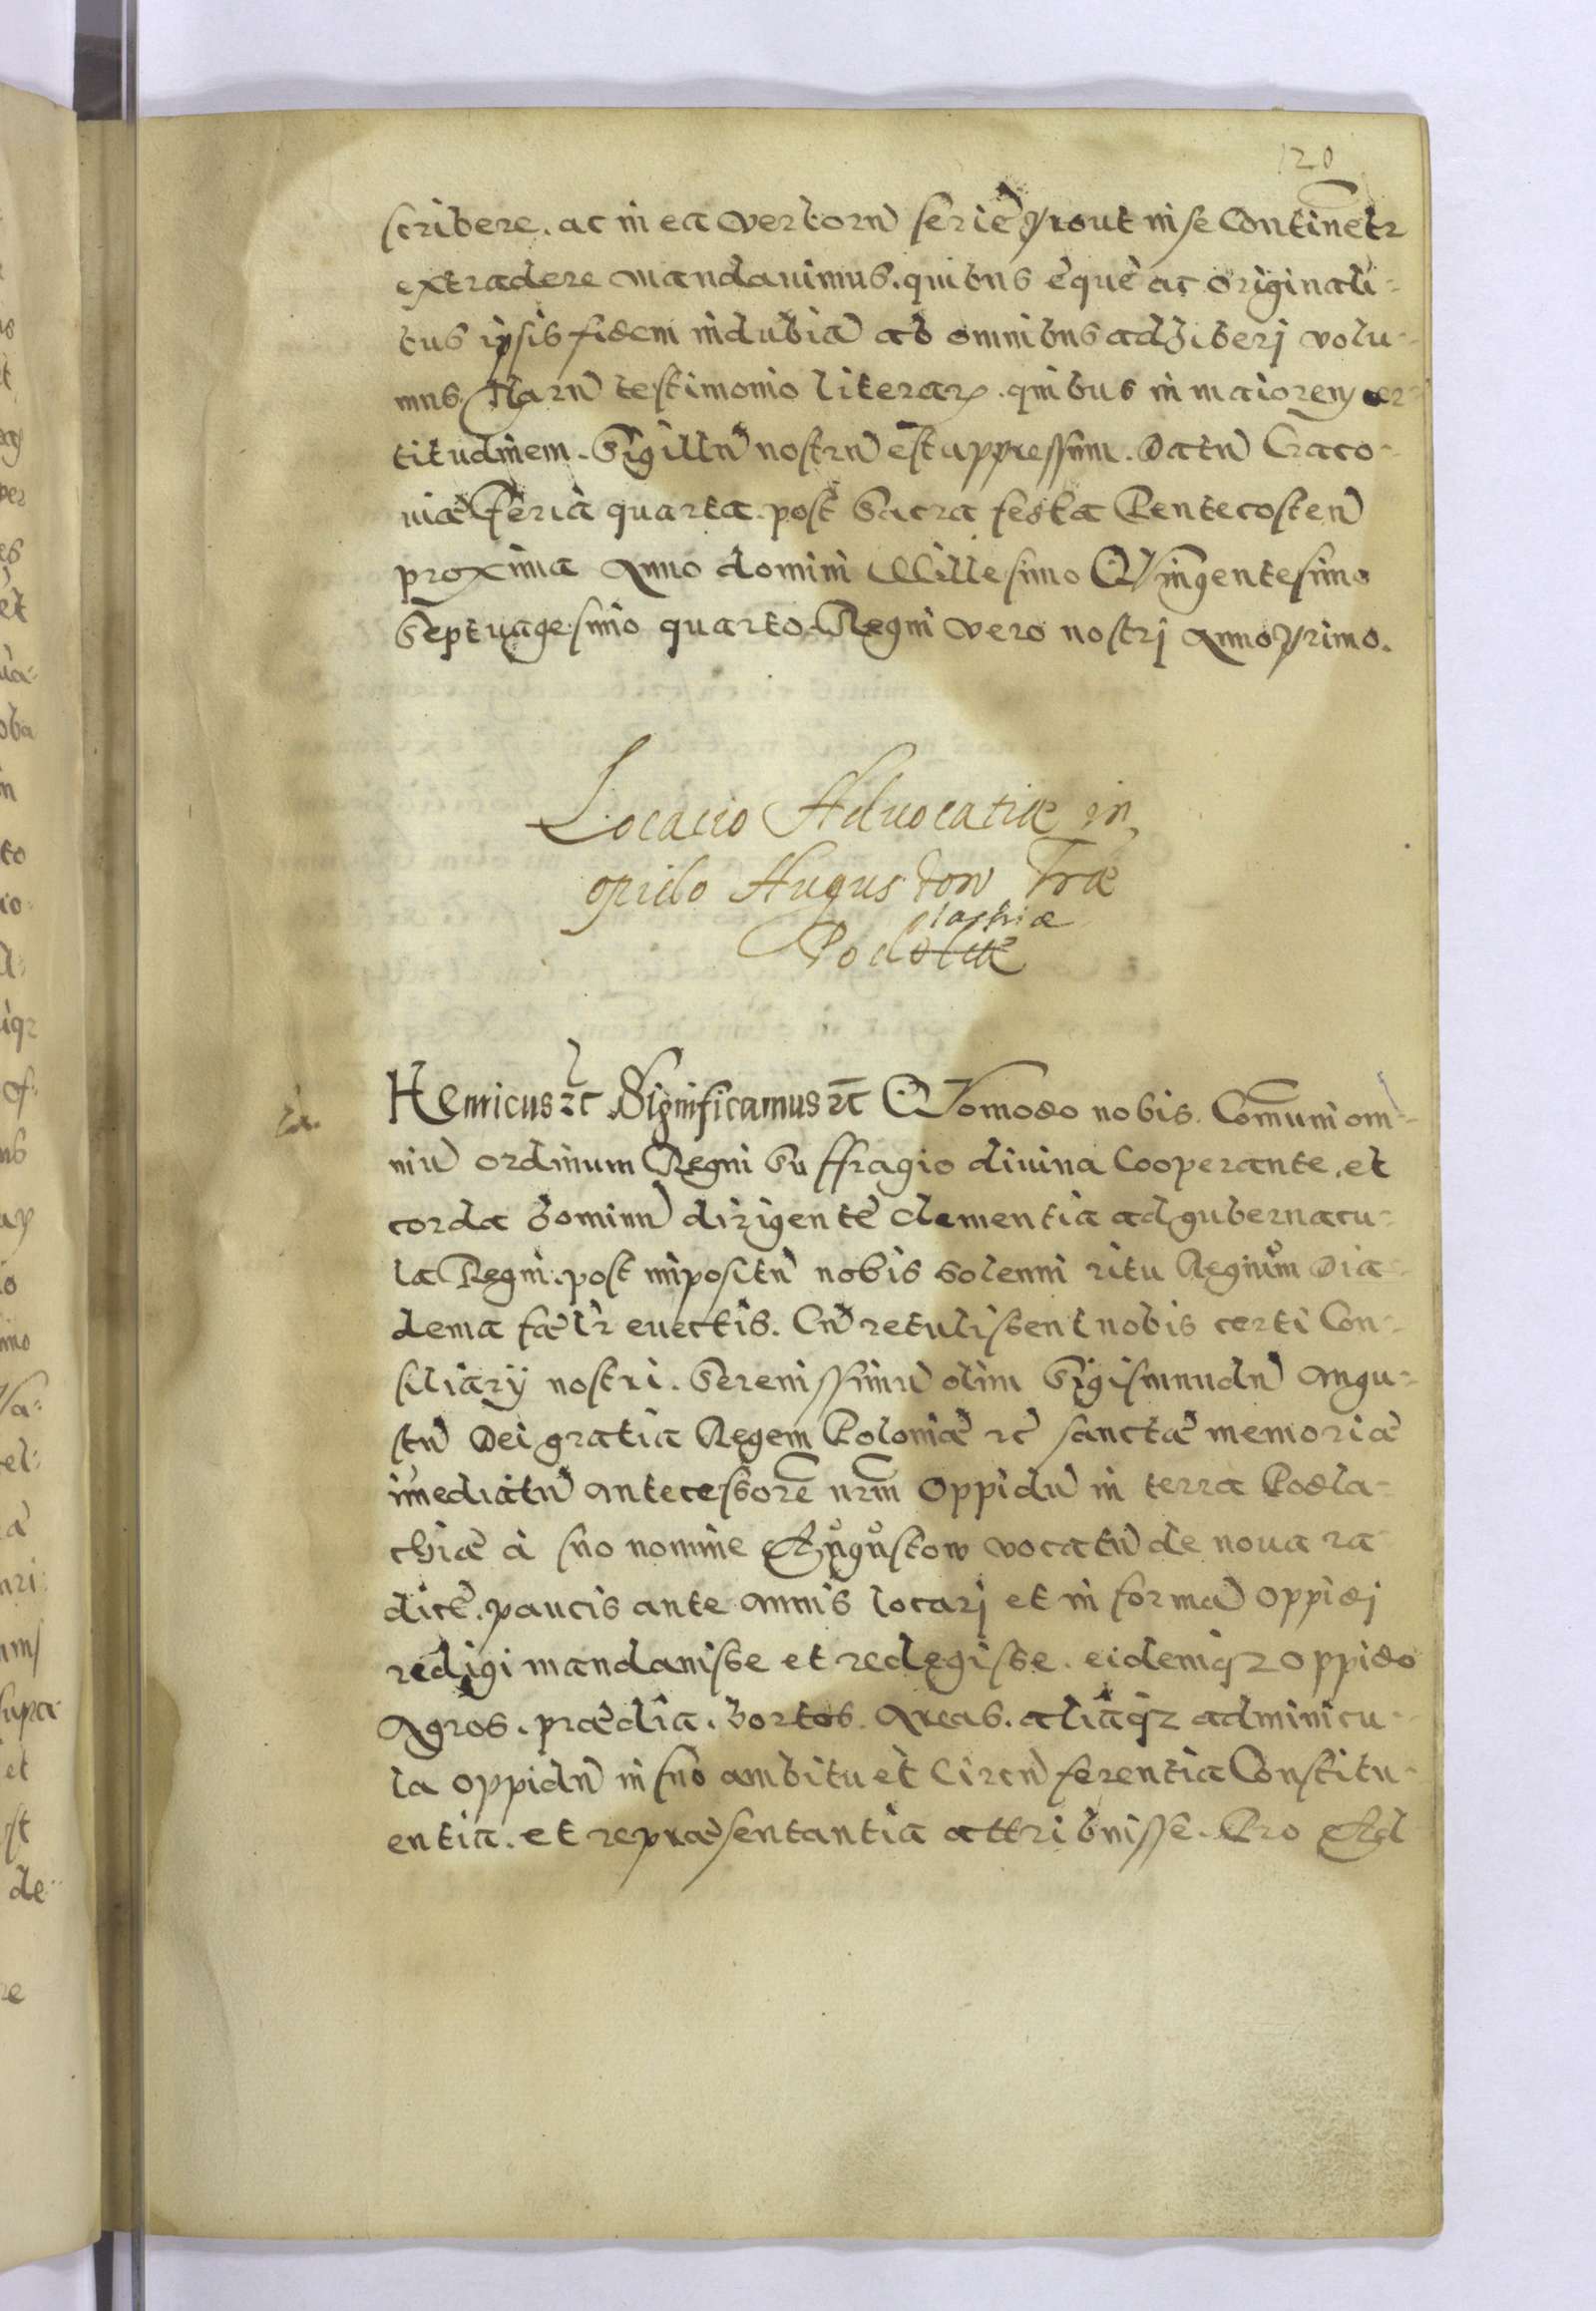 120
scribere. ac in ea verborũ seriẽ prout in se Continetr
extradere mandauimus. quibus eque ac originali-
bus ipsis fidem indubiã ab omnibus adhiberj volu-
mus. Harũ testimonio literarꝫ. quibus in maiorem cer-
titudinem. Sigillũ nostrũ est appressum. Datũ Craco-
uiæ Feria quarta. post Sacra festa Pentecosten̄
proxima Anno domini Millesimo Quingentesimo
Septuagesimo quarto. Regni vero nostrj Anno primo.
Locacio Advocatiæ in
opido Augustow Træ
lachiæ
Podoliæ
Henricus ꝛc Significamus ꝛc Quomodo nobis. Comuni om-
niũ ordinum Regni Suffragio diuina Cooperante. et
corda hominũ dirigente clementia ad gubernacu-
la Regni. post impositũ nobis solenni ritu Regium Dia-
dema fælr euectis. Cũ retulissent nobis certi Con-
siliarij nostri. Serenissimũ olim Sigismundũ Augu-
stũ Dei gratia Regem Poloniæ ꝛc sanctæ memoriæ
imediatũ antecessorẽ nrm̃ Oppidũ in terra Podla-
chiæ à suo nomine Augustow vocatũ de noua ra
dice. paucis ante annis locarj et in formã oppidj
redigi mandauisse et redegisse. eidemqꝫ oppido
Agros. prædia. hortos. Areas. aliaqꝫ adminicu-
la oppidũ in suo ambitu et Circũferentia Constitu-
entia. et repræsentantia attribuisse. Pro Ad